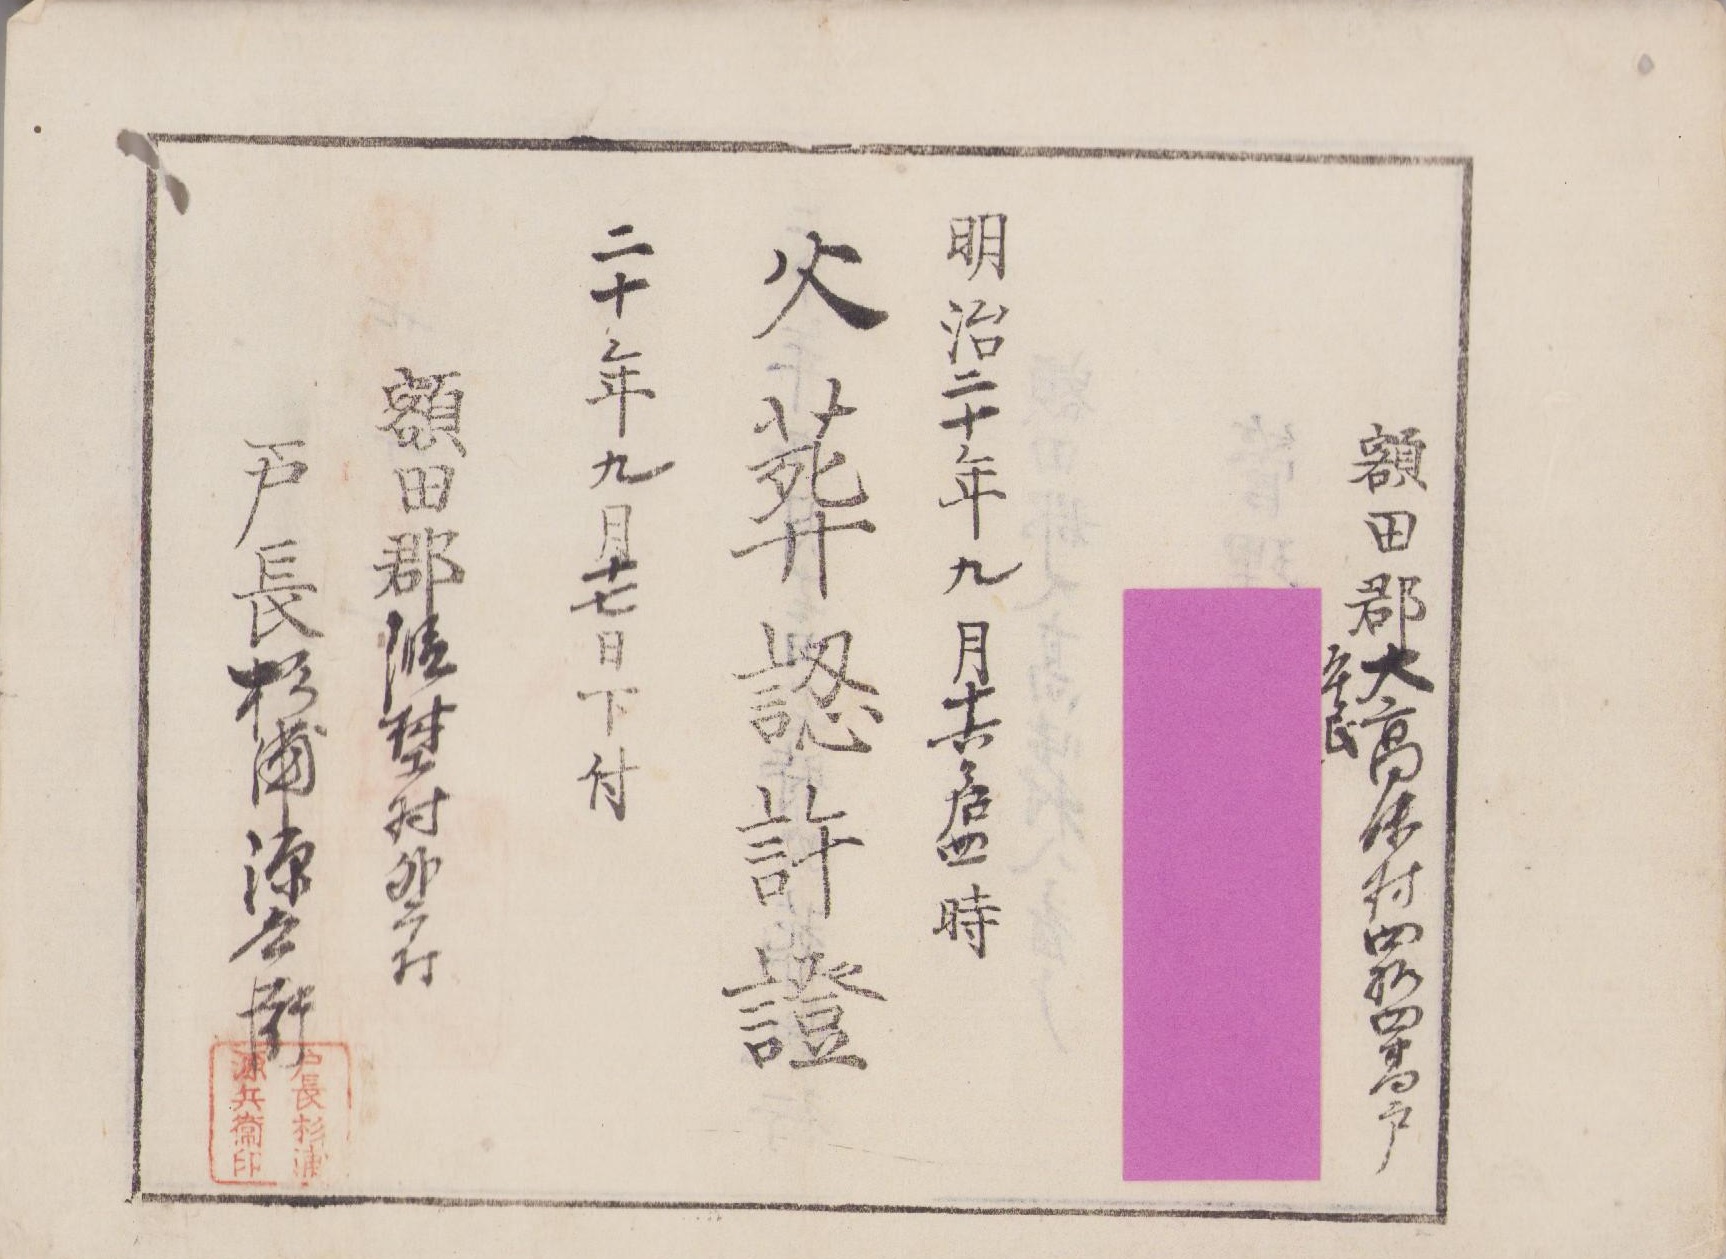 額田郡大高味村四拾四番戸
平民
明治二十年九月十六日 時
火葬認許證
二十年九月十七日下付
額田郡 村外 村
戸長杉浦源兵衛
戸長杉浦
源兵衞印